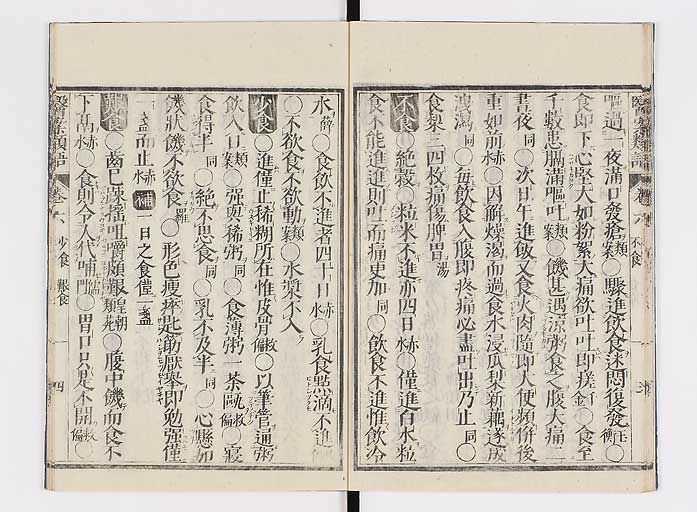 嘔過一夜滿口發瘡類案○驟進飲食迷悶復發正衡○
食即下心堅大如粉絮大痛欲吐吐即瘥千金○食至
千數患膈滿嘔吐類案○饑甚遇涼粥食之腹大痛二
晝夜同○次日午進飯又食火肉隨即大便頻併後
重如前赤水○因解燥渴而過食水浸瓜梨新藕遂成
洩瀉同○每飲食入腹即疼痛必盡吐出乃止同○
食栗三四枚痛傷脾胃湯
不食○絶穀○粒米不進亦四日赤水○僅進白水粒
食不能進進則吐而痛更加同○飲食不進惟飲冷
水薛○食飲不進者四十日赤水○乳食點滴不進
○不欲食不欲動類案○水漿不入
少食○進僅止稀糊所在惟皮骨救偏○以筆管通粥
飲入口類案○強與稀粥同○食薄粥一茶甌救偏○寢
食得半同○絶不思食同○乳不及半同○心懸如
饑狀饑不欲食羅○形色瘦瘁匙筯厭舉即勉強僅
一盞而止赤水 補 一日之食僅一盞
艱食○齒已踈搖咀嚼頗艱皇朝類苑○腹中饑而食不
下鬲赤水○食則令人代哺儒門○胃口只是不開救偏○
醫案類語 卷六 不食
醫案類語 卷六 少食 艱食 四